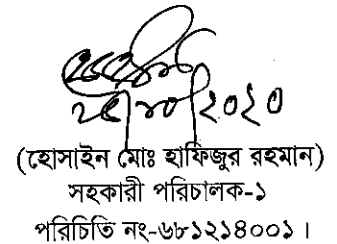 ২৫/১০/২০২০
(হোসাইন মোঃ হাফিজুর রহমান)
সহকারী পরিচালক-১
পরিচিতি নং-৬৮১২১৪০০১।